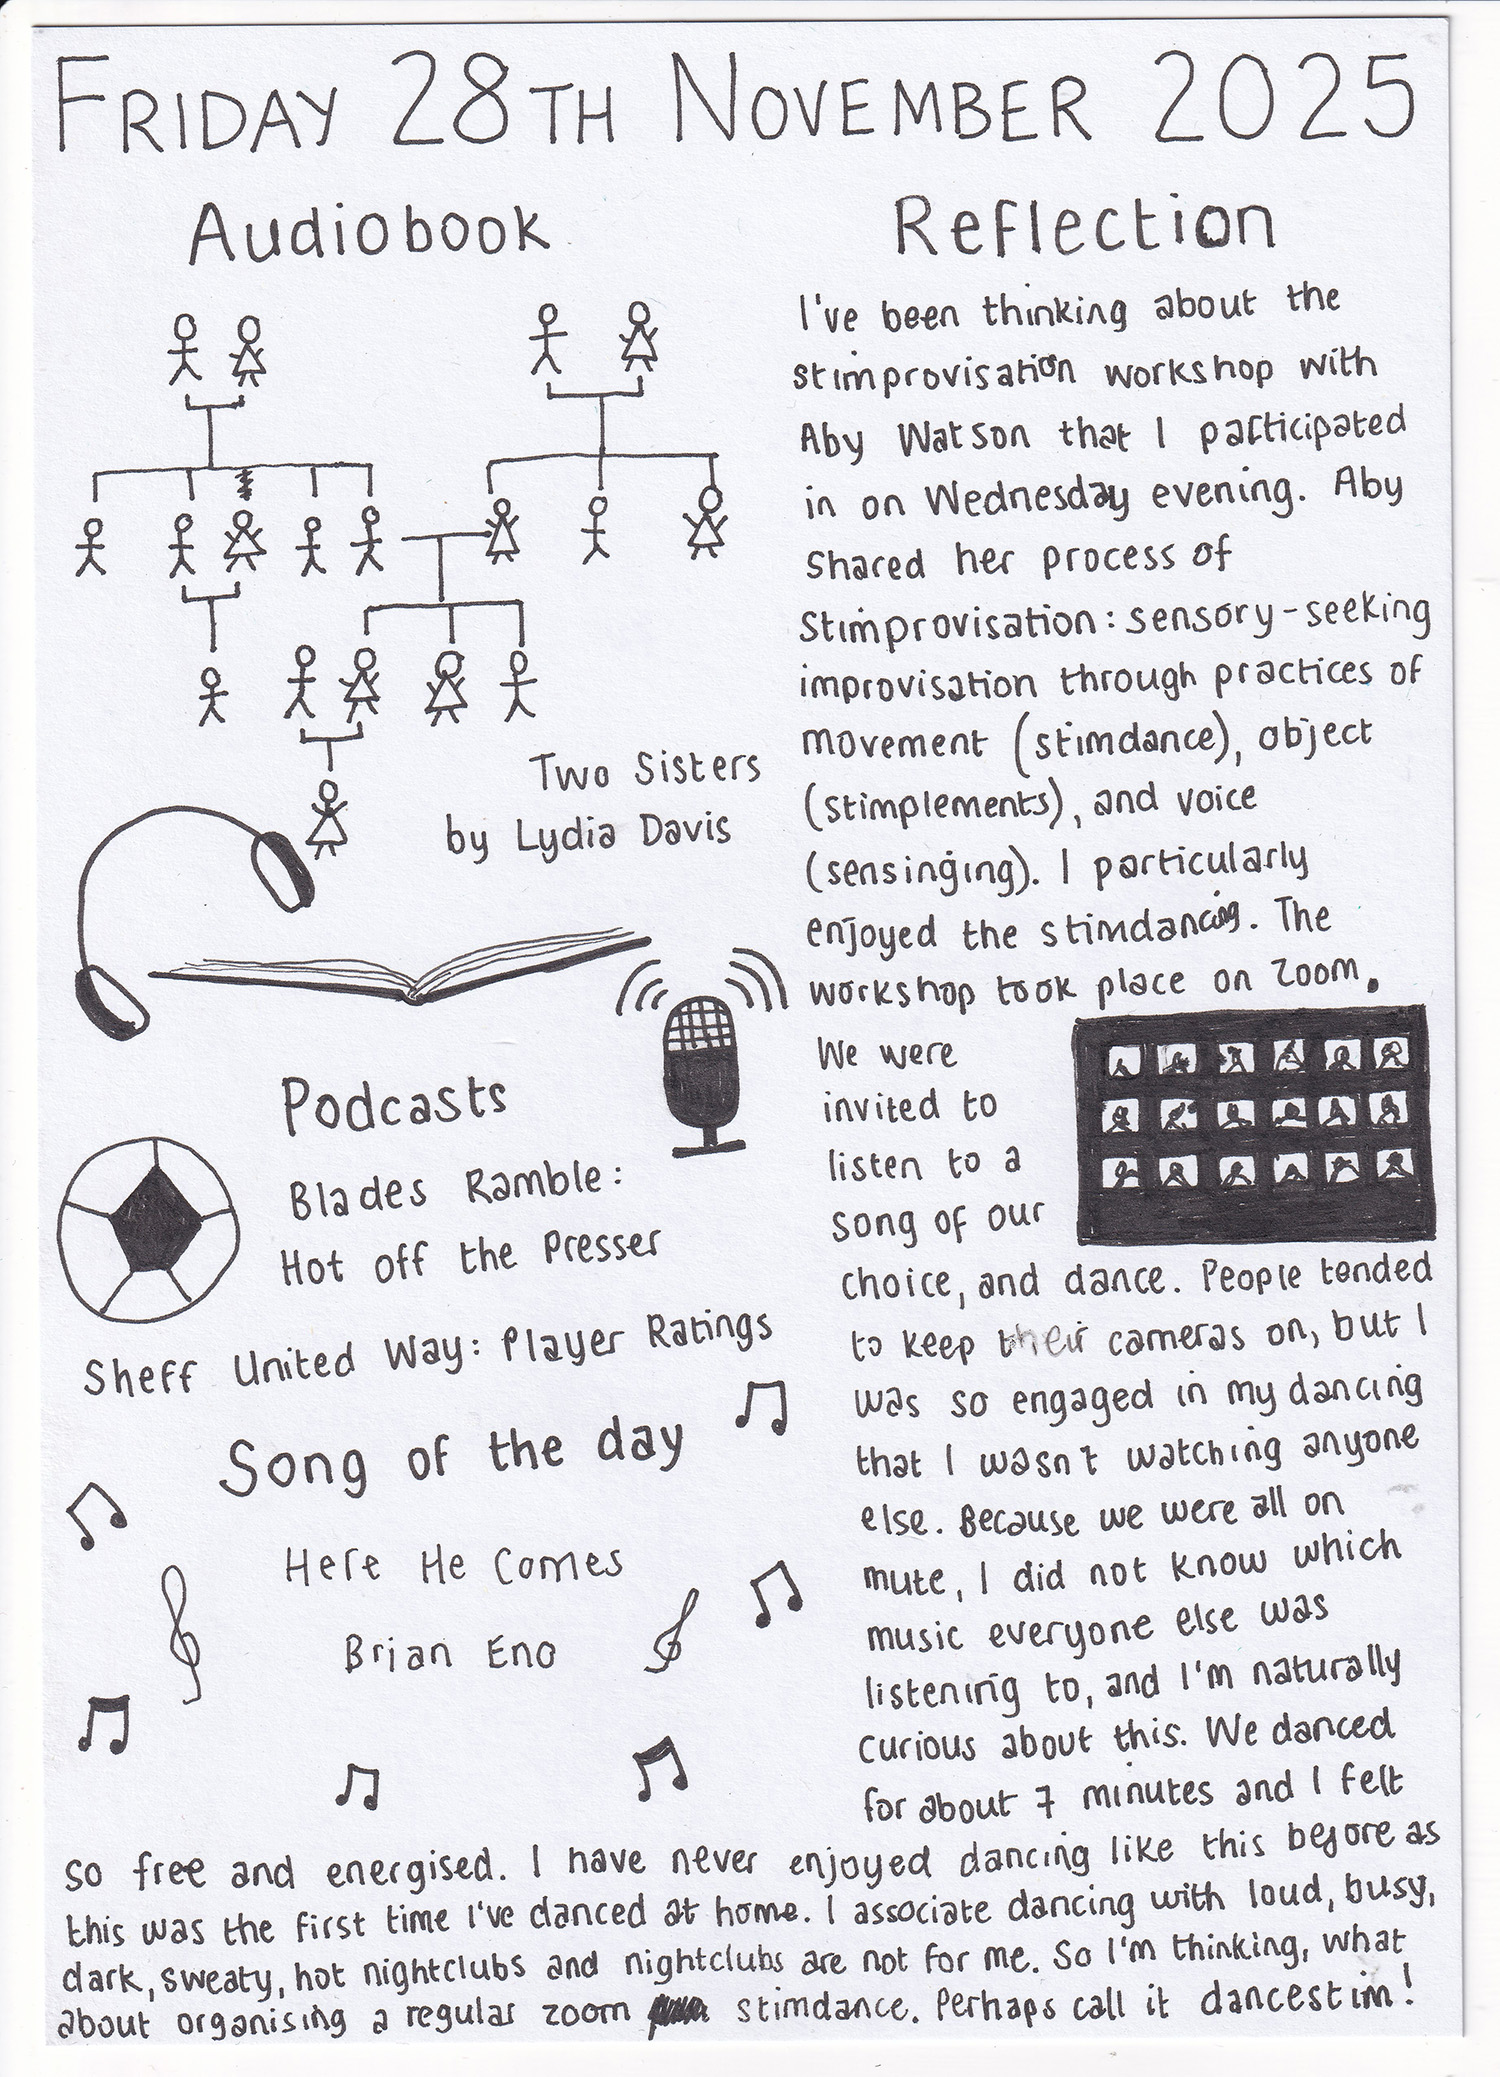 FRIDAY 28TH NOVEMBER 2025
Audiobook
Two Sisters
by Lydia Davis
Podcasts
Blades Ramble:
Hot off the Presser
Sheff United Way: Player Ratings
Song of the day
Here He Comes
Brian Eno
Reflection
I've been thinking about the
stimprovisation workshop with
Aby Watson that I participated
in on Wednesday evening. Aby
shared her process of
Stimprovisation: sensory-seeking
improvisation through practices of
movement (stimdance), object
(stimplements), and voice
(sensinging). I particularly
enjoyed the stimdancing. The
workshop took place on Zoom.
We were
invited to
listen to a
song of our
choice, and dance. People tended
to keep their cameras on, but I
was so engaged in my dancing
that I wasn't watching anyone
else. Because we were all on
mute, I did not know which
music everyone else was
listening to, and I'm naturally
curious about this. We danced
for about 7 minutes and I felt
so free and energised. I have never enjoyed dancing like this before as
this was the first time I've danced at home. I associate dancing with loud, busy,
dark, sweaty, hot nightclubs and nightclubs are not for me. So I'm thinking, what
about organising a regular zoom stimdance. Perhaps call it dancestim!